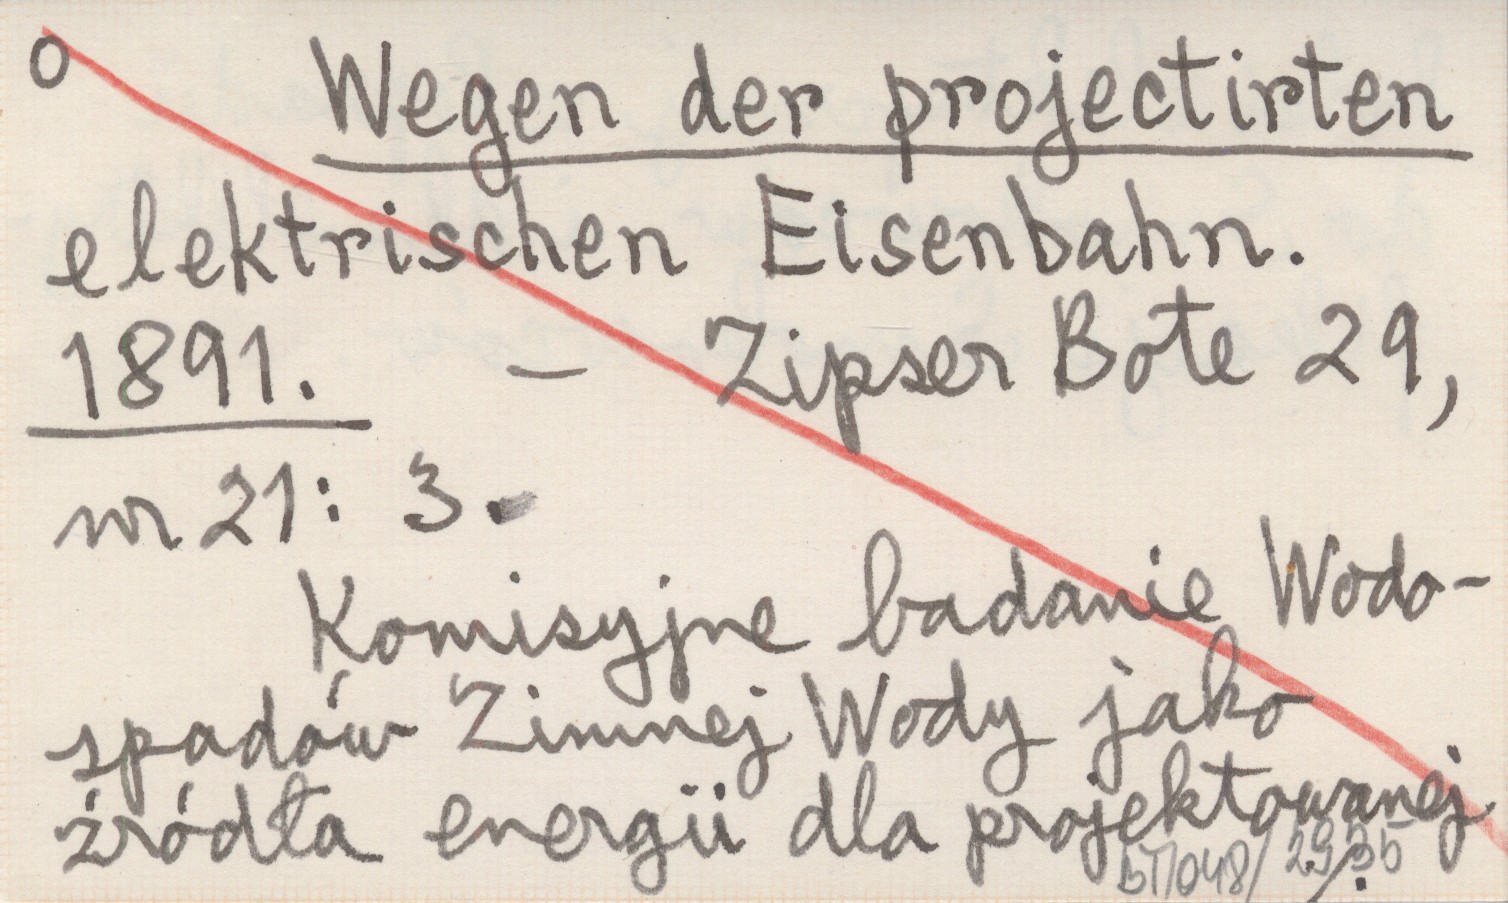 o Wegen der projectirten
elektrischen Eisenbahn.
1891. – Zipser Bote 29,
nr 21: 3.
Komisyjne badanie Wodo-
spadów Zimnej Wody jako
źródła energii dla projektowanej
bT/048/